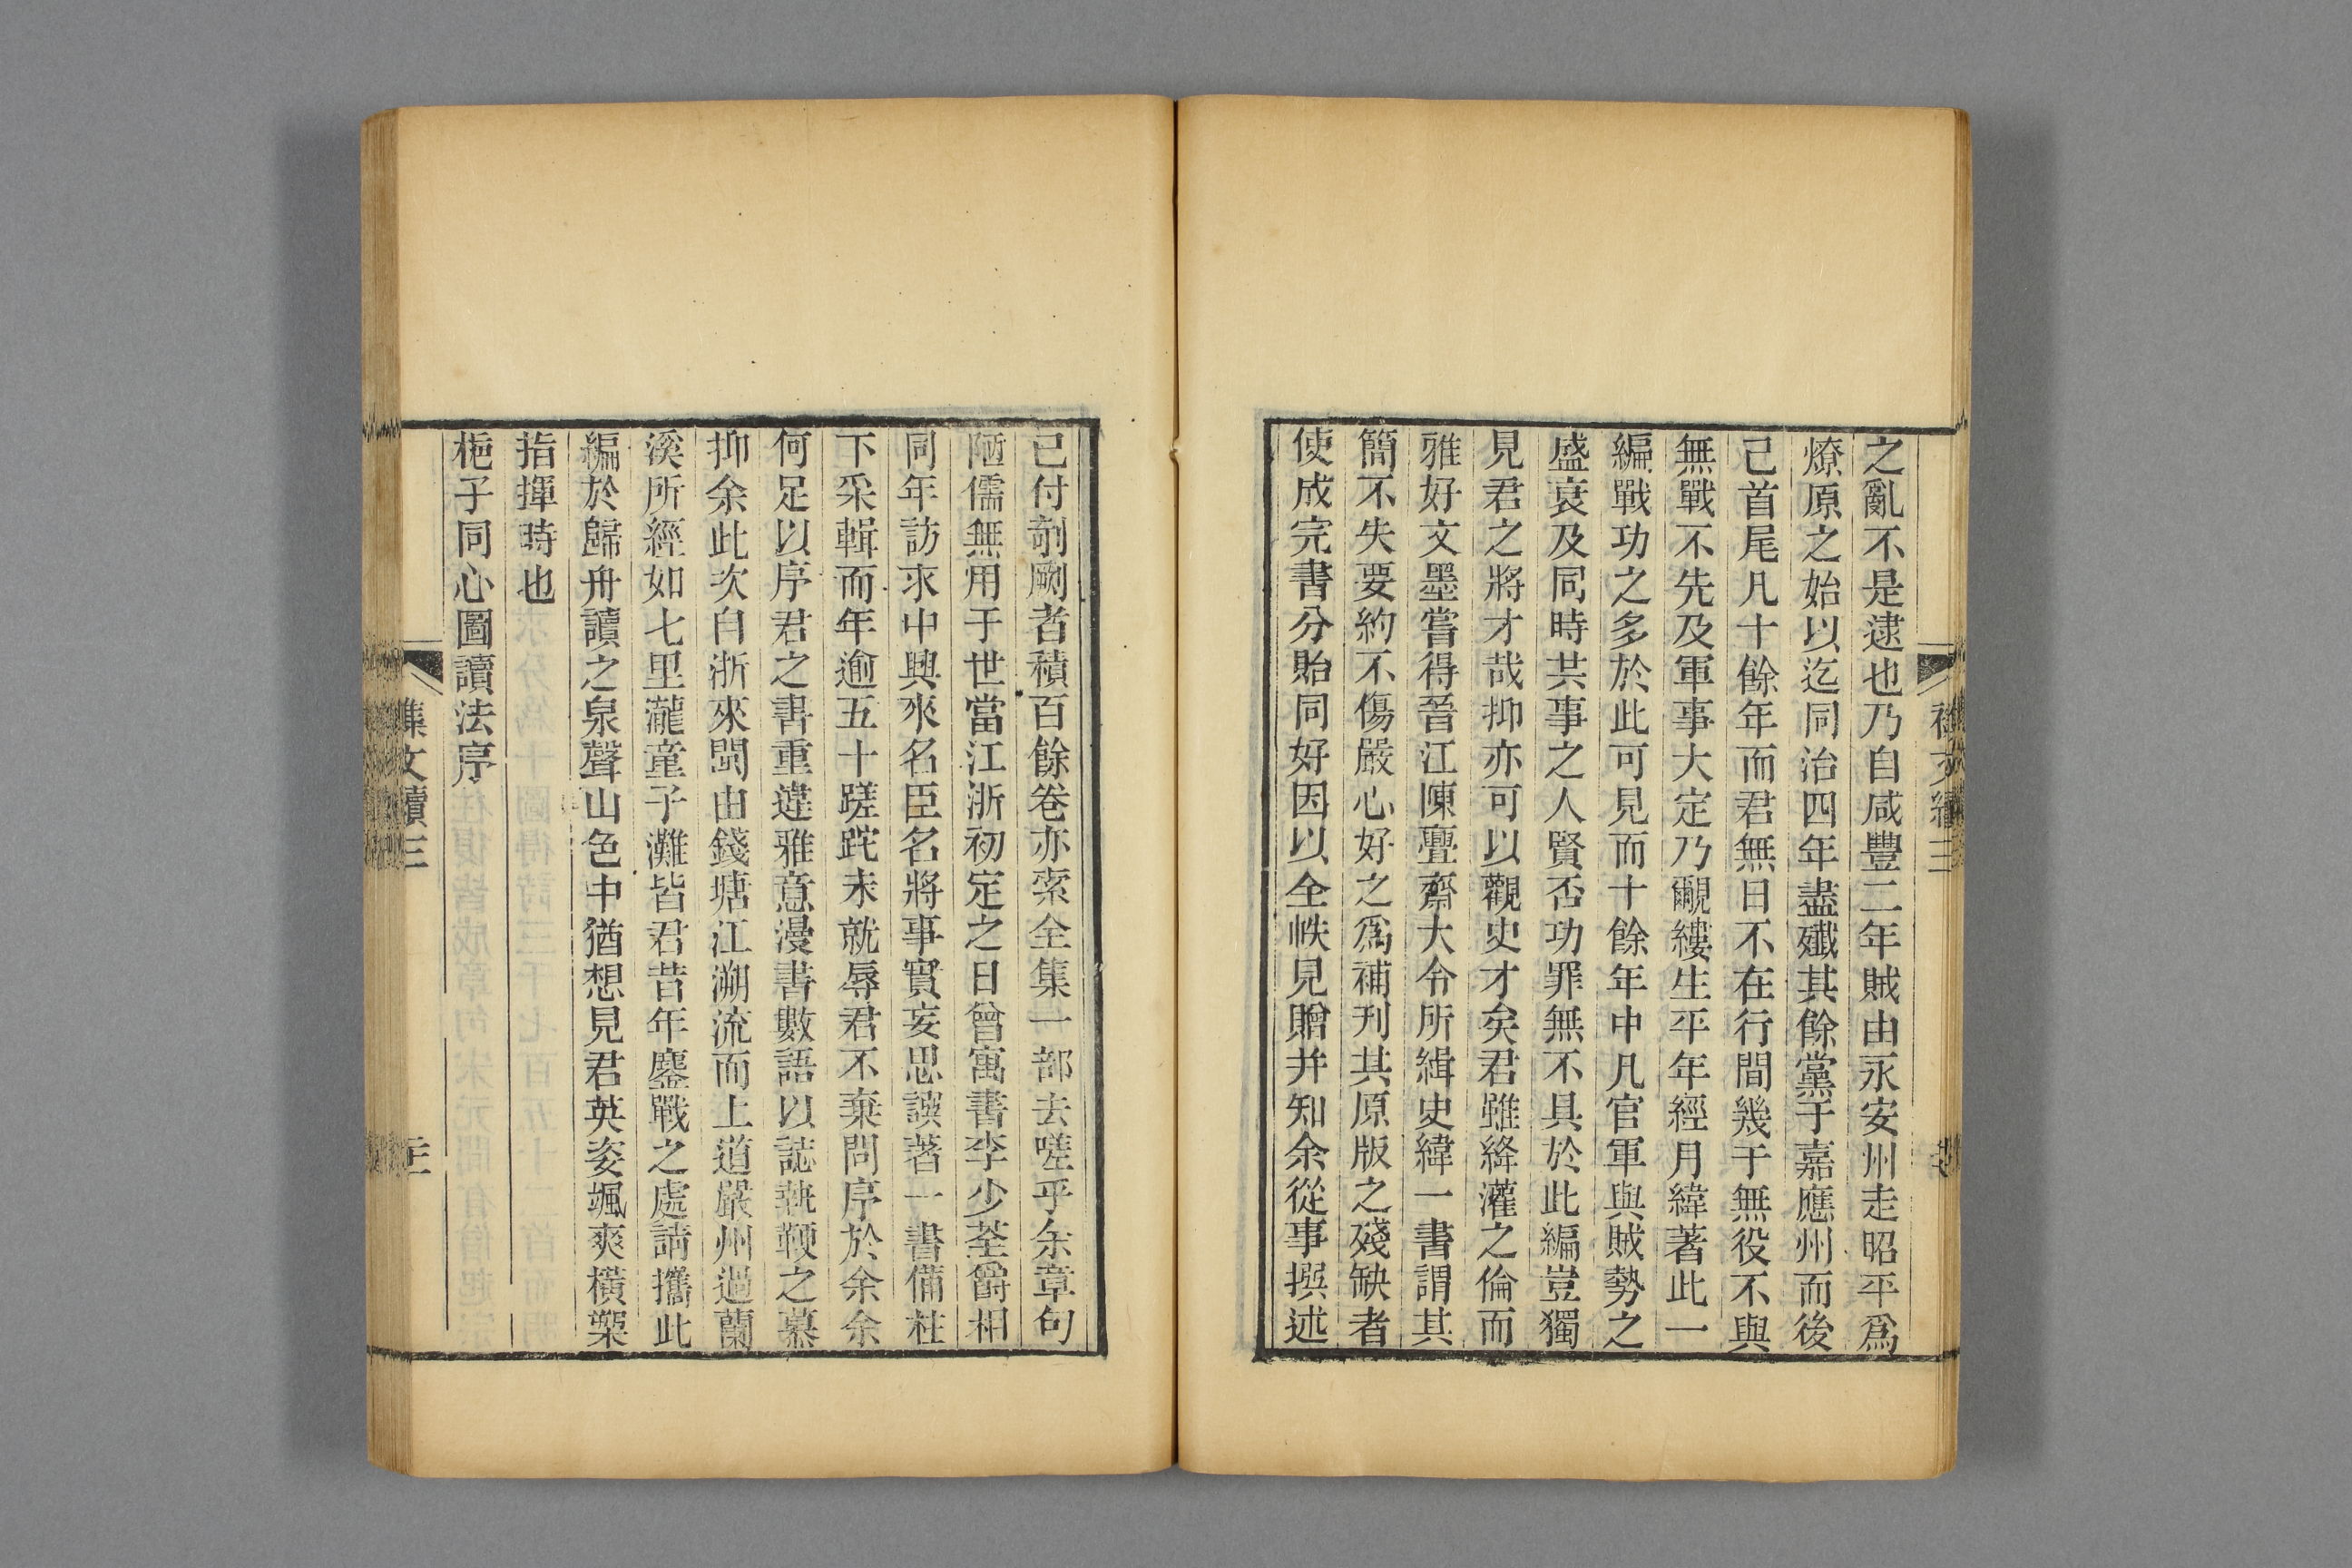 之亂不是逮也乃自咸豐二年賊由永安州走昭平爲
燎原之始以迄同治四年盡殲其餘黨于嘉應州而後
己首尾凡十餘年而君無日不在行間幾于無役不與
無戰不先及軍事大定乃覼縷生平年經月緯著此一
編戰功之多於此可見而十餘年中凡官軍與賊勢之
盛衰及同時共事之人賢否功罪無不具於此編豈獨
見君之將才哉抑亦可以觀史才矣君雖絳灌之倫而
雅好文墨嘗得晉江陳亹齋大令所緝史緯一書謂其
簡不失要約不傷嚴心好之爲補刊其原版之殘缺者
使成完書分貽同好因以全帙見贈并知余從事撰述
已付剞劂者積百餘卷亦索全集一部去嗟乎余章句
陋儒無用于世當江浙初定之日曾寓書李少荃爵相
同年訪求中興來名臣名將事實妄思譔著一書備柱
下采輯而年逾五十蹉跎未就辱君不棄問序於余余
何足以序君之書重違雅意漫書數語以誌執鞭之慕
抑余此次自浙來閩由錢塘江溯流而上道嚴州過蘭
溪所經如七里瀧童子灘皆君昔年鏖戰之處請攜此
編於歸舟讀之泉聲山色中猶想見君英姿颯爽橫槊
指揮時也
梔子同心圖讀法序
集文續三